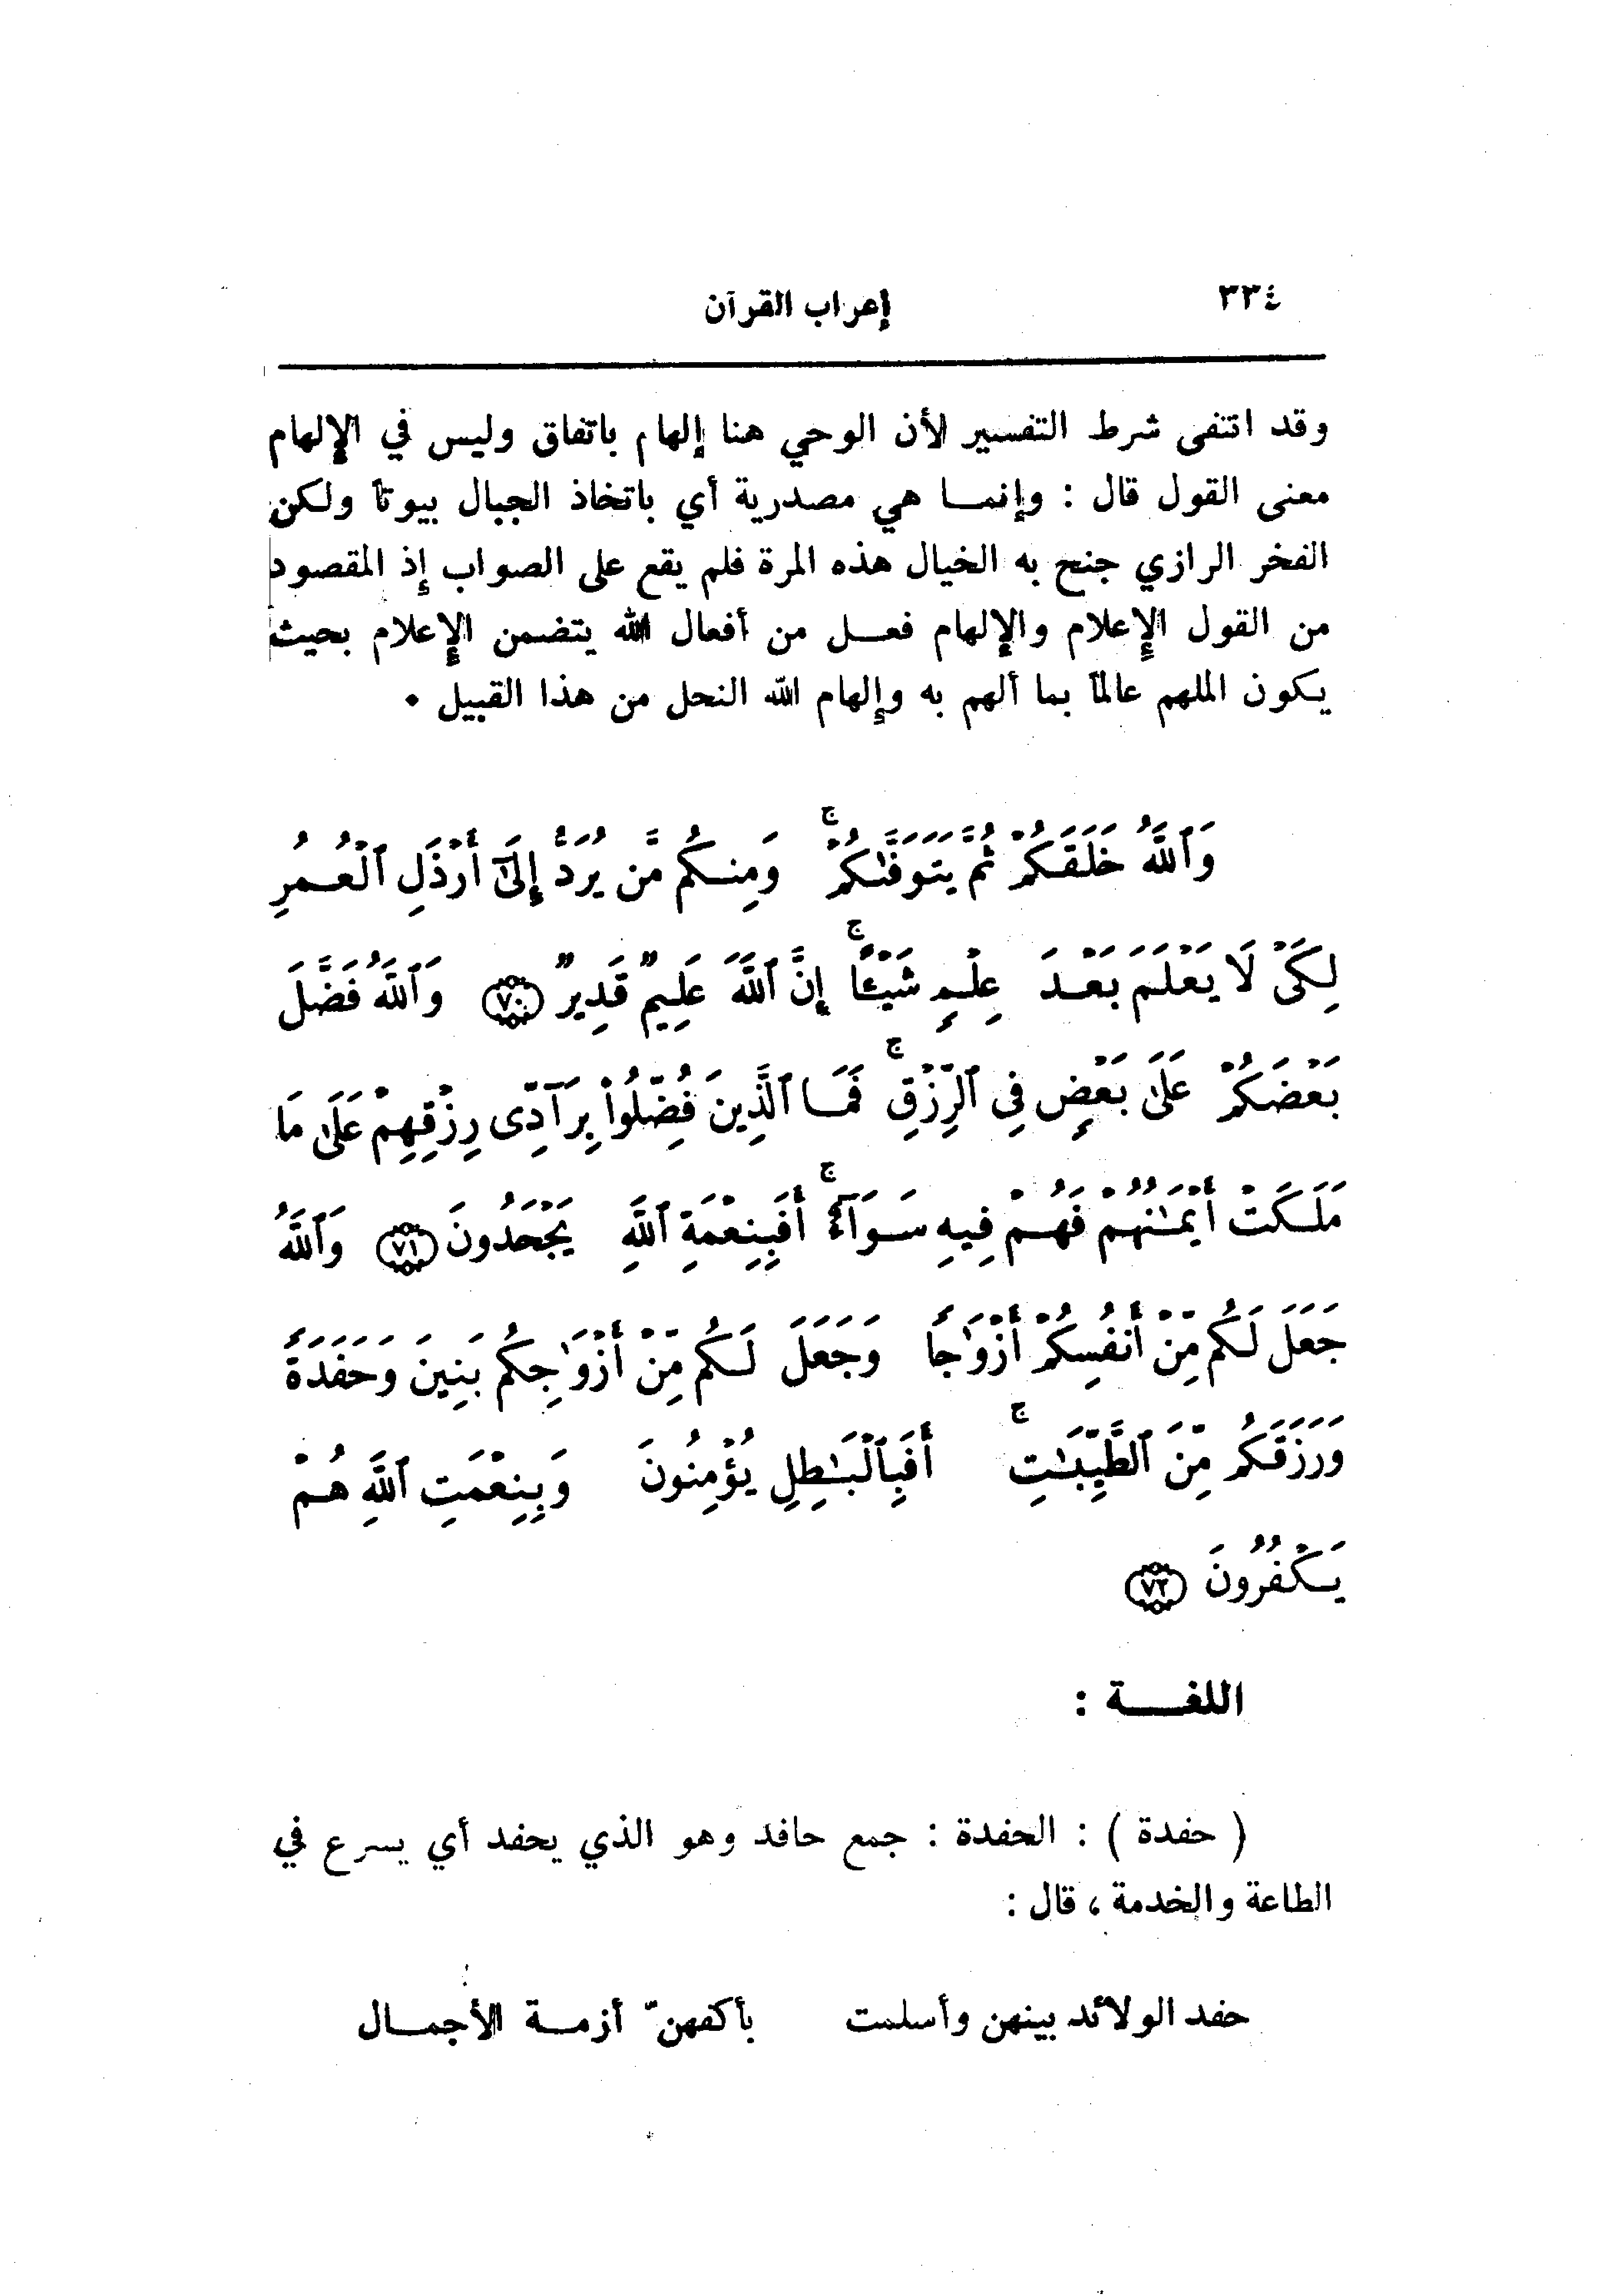 ٣٣٤ إعراب القرآن
وقد اتنفى شرط التفسير لأن الوحي هنا إلهام باتفاق وليس في الإلهام
معنى القول قال : وإنما هي مصدرية أي باتخاذ الجبال بيوتاً ولكن
الفخر الرازي جنح به الخيال هذه المرة فلم يقع على الصواب إذ المقصود
من القول الإعلام والإلهام فعل من أفعال الله يتضمن الإعلام بحيث
يكون الملهم عالماً بما ألهم به وإلهام الله النحل من هذا القبيل ٠
وَٱللَّهُ خَلَقَكُمْ ثُمَّ يَتَوَفَّىٰكُمْ ۚ وَمِنكُم مَّن يُرَدُّ إِلَىٰٓ أَرْذَلِ ٱلْعُمُرِ
لِكَىْ لَا يَعْلَمَ بَعْدَ عِلْمٍ شَيْـًٔا ۚ إِنَّ ٱللَّهَ عَلِيمٌ قَدِيرٌ ٧٠ وَٱللَّهُ فَضَّلَ
بَعْضَكُمْ عَلَىٰ بَعْضٍ فِى ٱلرِّزْقِ ۚ فَمَا ٱلَّذِينَ فُضِّلُوا۟ بِرَآدِّى رِزْقِهِمْ عَلَىٰ مَا
مَلَكَتْ أَيْمَٰنُهُمْ فَهُمْ فِيهِ سَوَآءٌ ۚ أَفَبِنِعْمَةِ ٱللَّهِ يَجْحَدُونَ ٧١ وَٱللَّهُ
جَعَلَ لَكُم مِّنْ أَنفُسِكُمْ أَزْوَٰجًا وَجَعَلَ لَكُم مِّنْ أَزْوَٰجِكُم بَنِينَ وَحَفَدَةً
وَرَزَقَكُم مِّنَ ٱلطَّيِّبَٰتِ ۚ أَفَبِٱلْبَٰطِلِ يُؤْمِنُونَ وَبِنِعْمَتِ ٱللَّهِ هُمْ
يَكْفُرُونَ ٧٢
اللغة :
( حفدة ) : الحفدة : جمع حافد وهو الذي يحفد أي يسرع في
الطاعة والخدمة ، قال :
حفد الولائد بينهن وأسلمت بأكفهنّ أزمة الأجمال